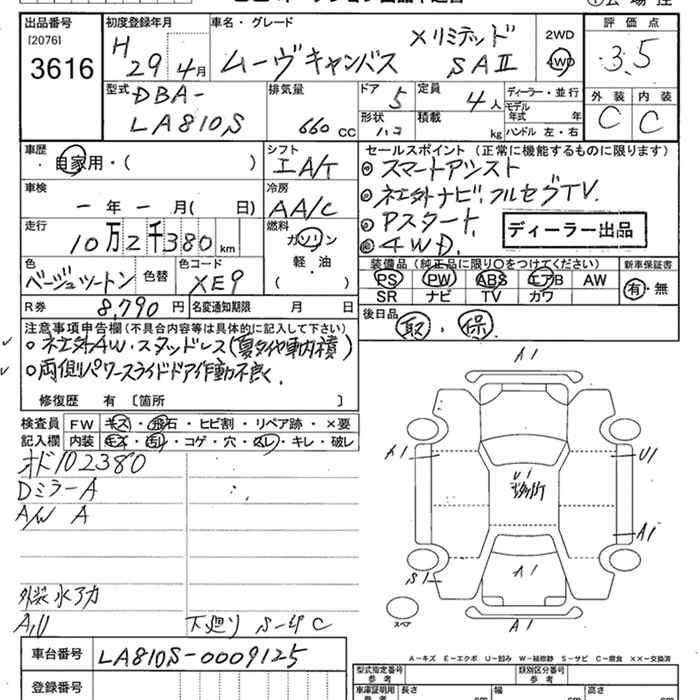 出品番号 初度登録年月 車名・グレード 評価点
[2076]
3616
H 29年 4月
ムーヴキャンバス Xリミテッド SAⅡ
2WD 4WD
3.5
型式 DBA-
LA810S
排気量 660 CC
ドア 5 定員 4人
形状 ハコ 積載 kg
ディーラー・並行
モデル年式 年式
ハンドル 左・右
外装 内装
C C
車歴 自家用・( )
シフト IA/T
セールスポイント(正常に機能するものに限ります)
スマートアシスト
社外ナビ.フルセグTV.
Pスタート.
4WD.
ディーラー出品
車検 ー年ー月( 日)
冷房 AA/C
走行 10万2千380km
燃料 ガソリン
軽・油
( )
色 ベージュツートン 色替 色コード XE9
R券 8,790円 名変通知期限 月 日
装備品(純正品に限り○をつけてください) 新車保証書
PS PW ABS エアB AW
SR ナビ TV カワ
有・無
後日品 取・保
注意事項申告欄(不具合内容等は具体的に記入して下さい)
○社外AW.スタッドレス(夏タイヤ車内積)
○両側パワースライドドア作動不良.
修復歴 有〔箇所 〕
検査員 FW キズ・飛石・ヒビ割・リペア跡・×要
記入欄 内装 キズ・汚レ・コゲ・穴・スレ・キレ・破レ
オド102380
Dミラー A
A/W A
外装 水アカ
A,U
下廻り S-4 C
A1
A1 U1
U1
A1
S1 A1
A1
スペア
A-キズ E-エクボ U-凹み W-補修跡 S-サビ C-腐食 ××-交換済
車台番号 LA810S-0009125
登録番号
型式指定番号 参考 類別区分番号 参考
車庫証明用 参考 長さ cm 幅 cm 高さ cm